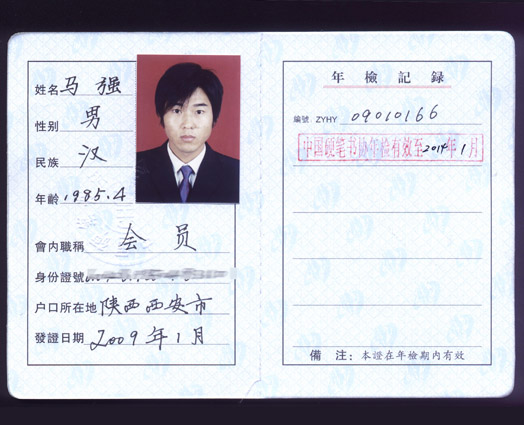 姓名 马强
性别 男
民族 汉
年龄 1985.4
會内職稱 会员
身份證號
户口所在地 陕西西安市
發證日期 2009年1月
年檢記録
編號 ZYHY 09010166
中国硬笔书协年检有效至2014年1月
備注:本證在年檢期内有效